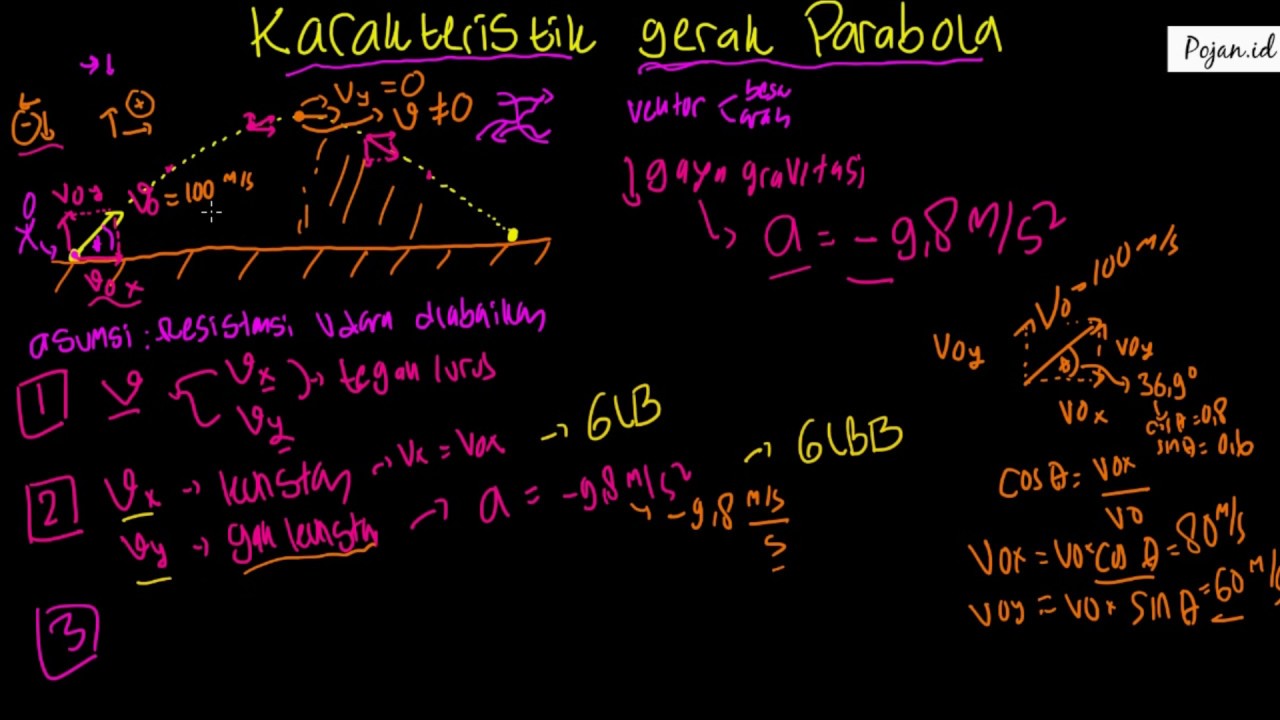 Karakteristik gerak Parabola
Pojan.id
Vy = 0
v ≠ 0
vektor < besar
arah
Voy
Vo = 100 m/s
Vox
gaya gravitasi
a = -9,8 m/s²
asumsi : Resistansi Udara diabaikan
1 v
Vx
Vy
tegak lurus
2 Vx → konstan → Vx = Vox → GLB
Vy → gak konstan → a = -9,8 m/s² → GLBB
→ -9,8 m/s
s
3
Vo = 100 m/s
Voy
Voy
Vox
36,9°
cos θ = 0,8
sin θ = 0,6
cos θ = Vox
Vo
Vox = Vo × cos θ = 80 m/s
Voy = Vo × sin θ = 60 m/s